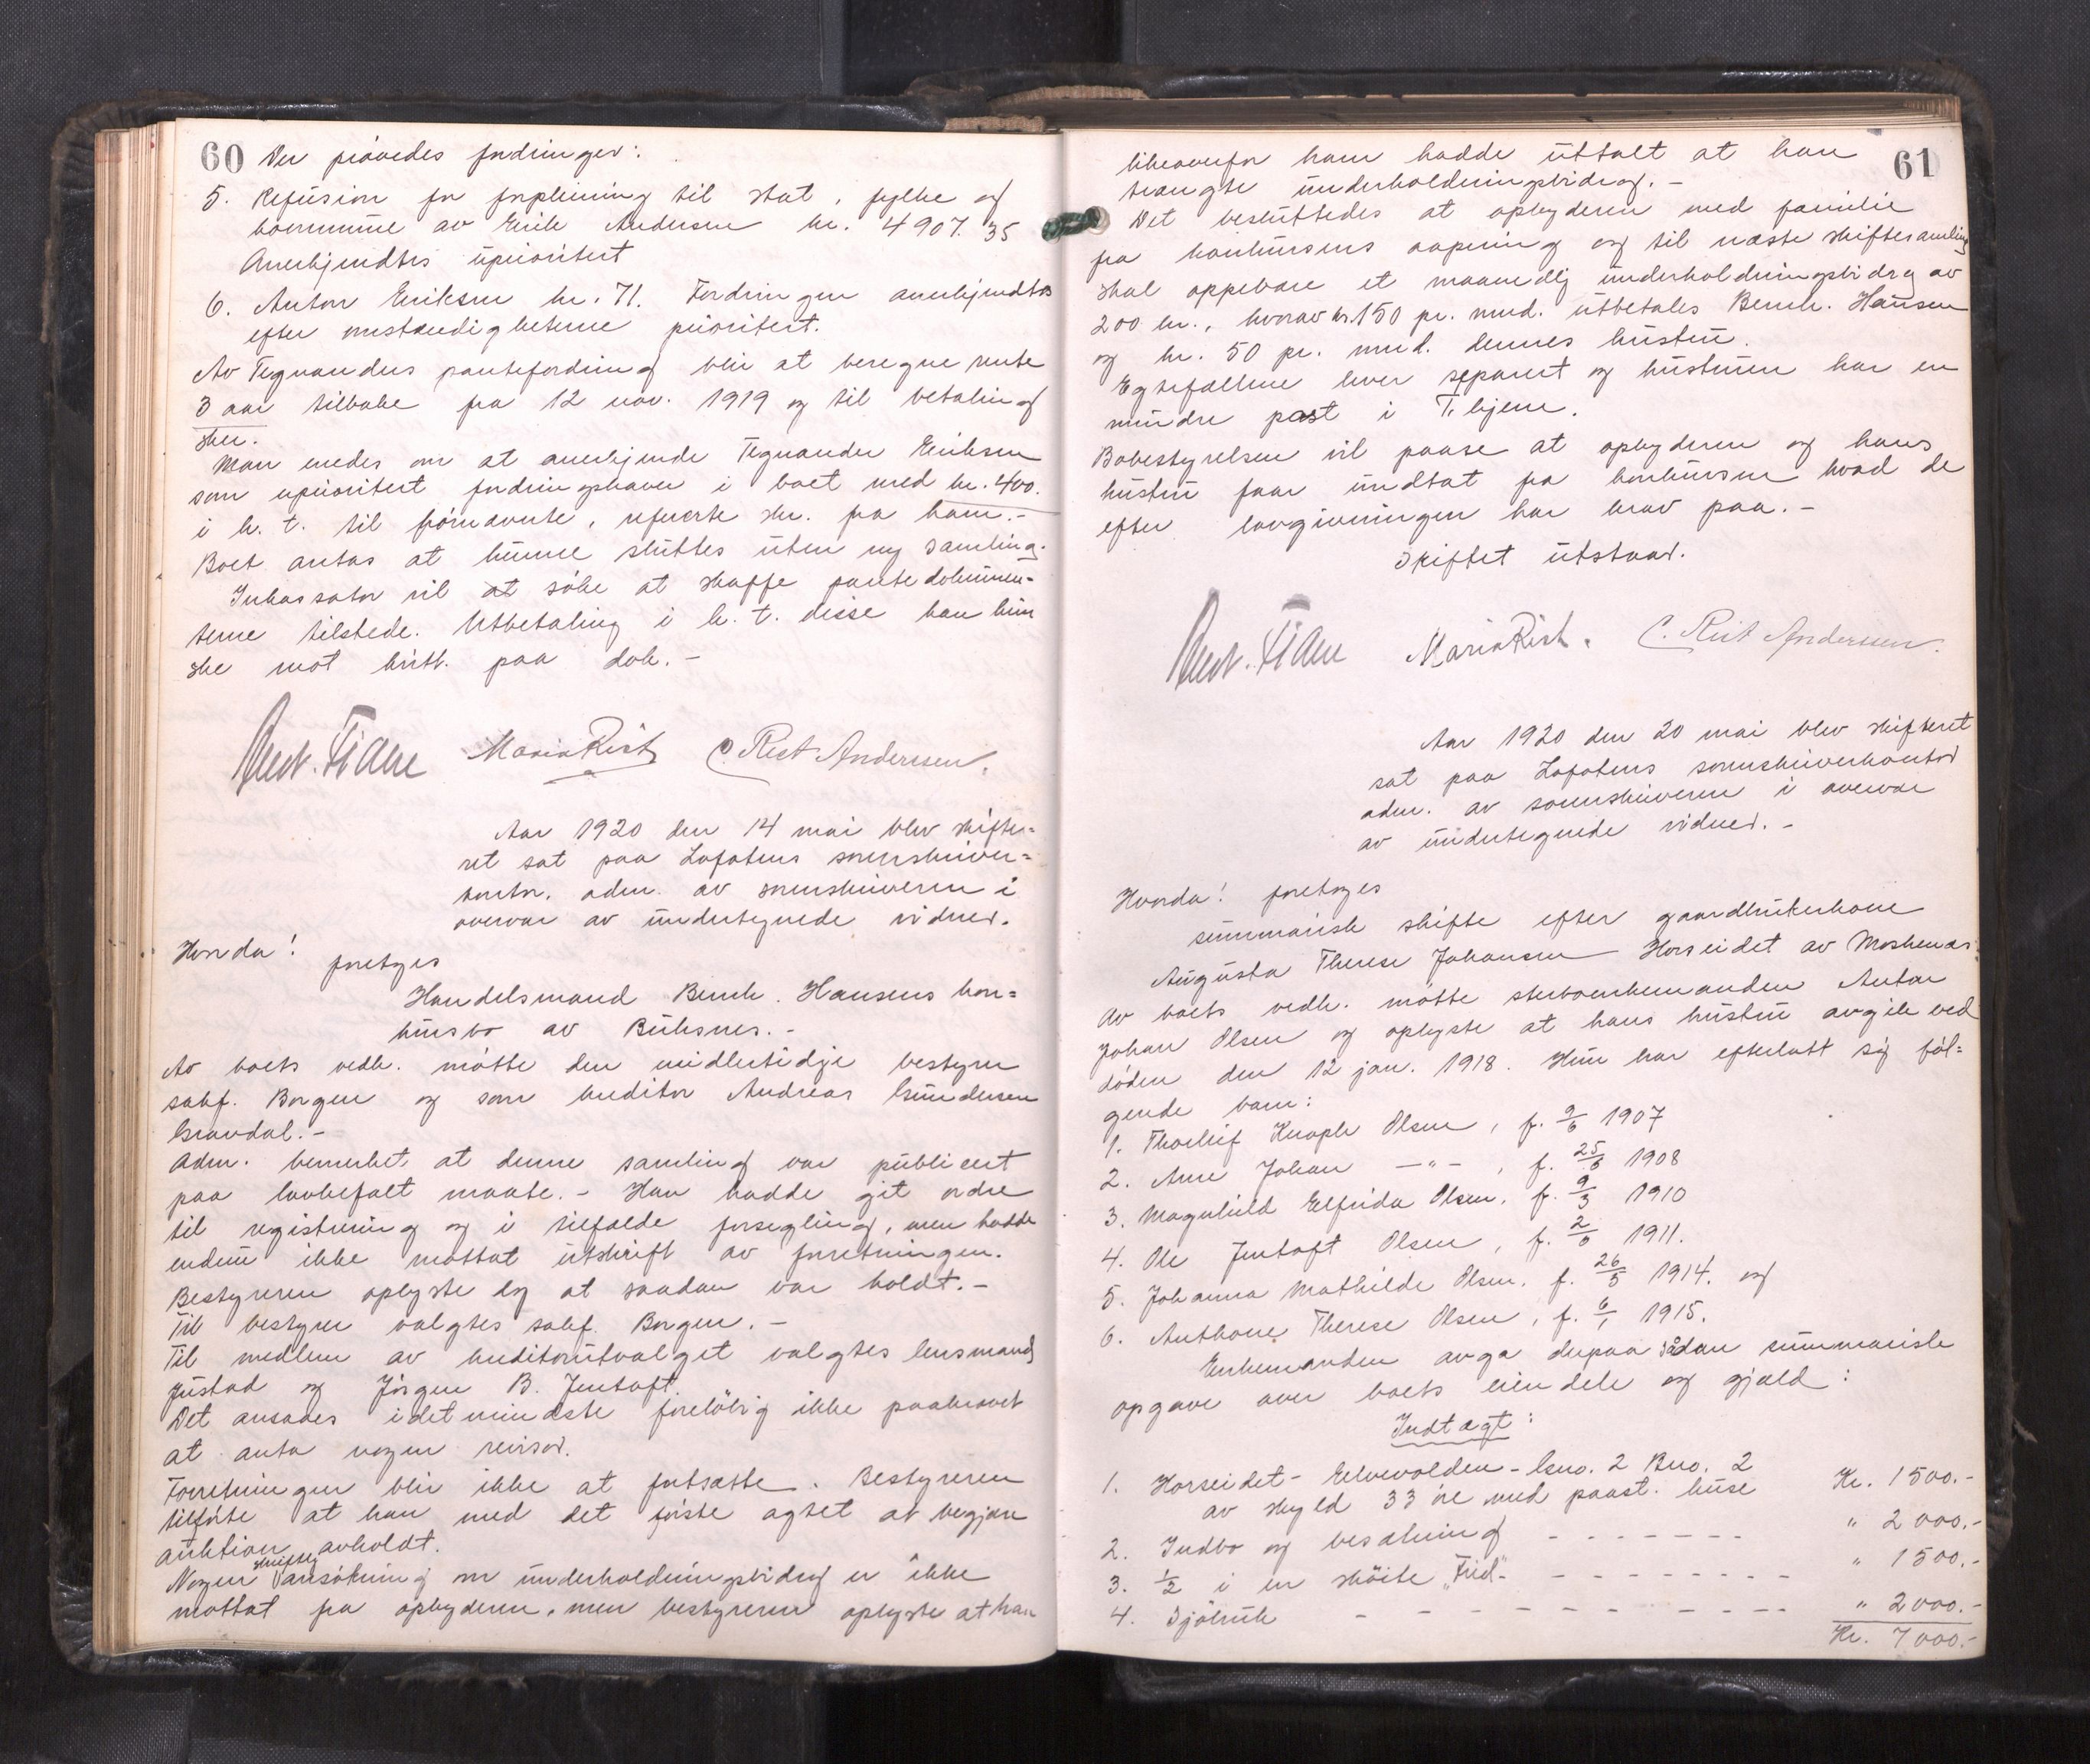 60 Der prövedes fordringer:
5. Refusion for forpleining til stat, fylke og
kommune av Erik Andersen kr. 4907.35
Anerkjendtes uprioritert
6. Anton Eriksen kr. 71. Fordringen anerkjendtes
efter omstændigheterne prioritert.
Av Tegnanders pantefordring blir at beregne rente
3 aar tilbake fra 12 nov. 1919 og til betaling
sker.
Man enedes om at anerkjende Tegnander Eriksen
som uprioritert fordringshaver i boet med kr. 400.
i h. t. til
Boet antas at kunne sluttes uten ny samling.
Inkassator vil at söke at skaffe pantedokumen=
terne tilstede. Utbetaling i h. t. disse kan kun
ske mot kvitt. paa dok. -
Maria Rist C. Rist Andersen.
Aar 1920 den 14 mai blev skifte=
ret sat paa Lofotens sorenskriver=
kontor. adm. av sorenskriveren i
overvær av undertegnede vidner.
Hvorda! foretoges
Handelsmand Bernh. Hansens kon=
kursbo av Buksnes. -
Av boets vedk. mötte den midlertidige bestyrer
sakf. Borgen og som kreditor Andreas Gundersen
Gravdal. -
Adm. bemerket at denne samling var publicert
paa lovbefalt maate. - Han hadde git ordre
til registrering og i tilfælde forsegling, men hadde
endnu ikke mottat utskrift av forretningen.
Bestyreren oplyste dog at saadan var holdt. -
Til bestyrer valgtes sakf. Borgen. -
Til medlem av kreditorutvalget valgtes lensmand
Justad og Jörgen B. Jentoft.
Det ansaaes idetmindste foreløbig ikke paakrævet
at anta nogen revisor.
Forretningen blir ikke at fortsætte. Bestyreren
tilföiet at han med det förste agtet at begjære
auktion avholdt.
Nogen skriftlig ansökning om underholdningsbidrag er ikke
mottat fra opbyderen, men bestyreren oplyste at han
61
likeoverfor ham hadde uttalt at han
trængte underholdningsbidrag. -
Det besluttedes at opbyderen med familie
fra konkursens aapning og til næste skiftesamling
skal oppebære et maanedlig underholdningsbidrag av
200 kr., hvorav kr. 150 pr. mnd. utbetales Bernh. Hansen
og kr. 50 pr. mnd. dennes hustru.
Egtefællene lever separert og hustruen har en
mindre post i T. hjem.
Bobestyrelsen vil paase at opbyderen og hans
hustru faar undtat fra konkursen hvad de
efter lovgivningen har krav paa. -
Skiftet utstaar.
Maria Rist. C. Rist Andersen.
Aar 1920 den 20 mai blev skifteret
sat paa Lofotens sorenskriverkontor
adm. av sorenskriveren i overvær
av undertegnede vidner. -
Hvorda! foretoges
summarisk skifte efter gaardbrukerkone
Augusta Therese Johansen Horseidet av Moskenes.
Av boets vedk. mötte sterboenkemanden Anton
Johan Olsen og oplyste at hans hustru avgik ved
döden den 12 jan. 1918. Hun har efterlatt sig föl=
gende barn:
1. Thorleif Knoph Olsen, f. 9/6 1907
2. Arne Johan -"- , f. 25/5 1908
3. Magnhild Elfrida Olsen. f. 9/3 1910
4. Ole Jentoft Olsen, f. 2/6 1911.
5. Johanna Mathilde Olsen. f. 26/5 1914. og
6. Anthone Therese Olsen, f. 6/1 1915.
Enkemanden avga derpaa sådan summarisk
opgave over boets eiendele og gjæld:
Indtægt:
1. Horseidet - Elvevolden - Gno. 2 Bno. 2
av skyld 33 öre med paast. huse Kr. 1500.-
2. Indbo og besætning - - - - - - - " 2000.-
3. 1/2 i en sköite "Frid" - - - - - - - - " 1500.-
4. Sjöbruk - - - - - - - - - - " 2000.-
Kr. 7000.-